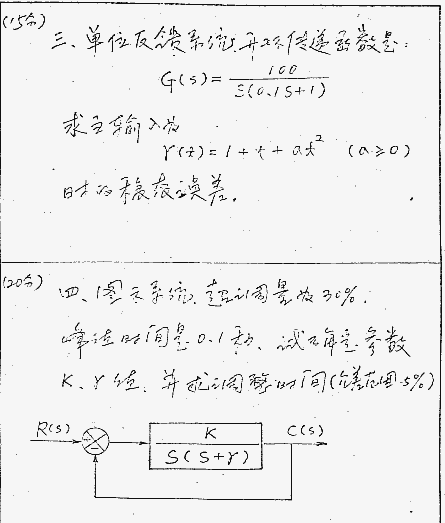 (15分)
三、单位反馈系统，开环传递函数是：
G(s)= 100 / S(0.1S+1)
求在输入为
r(t)=1+t+at² (a≥0)
时的稳态误差。
(20分)
四、图示系统，超调量为30%，
峰值时间是0.1秒、试确定参数
K、γ值，并求调整时间(误差范围5%)
R(s)
K / S(S+γ)
C(s)